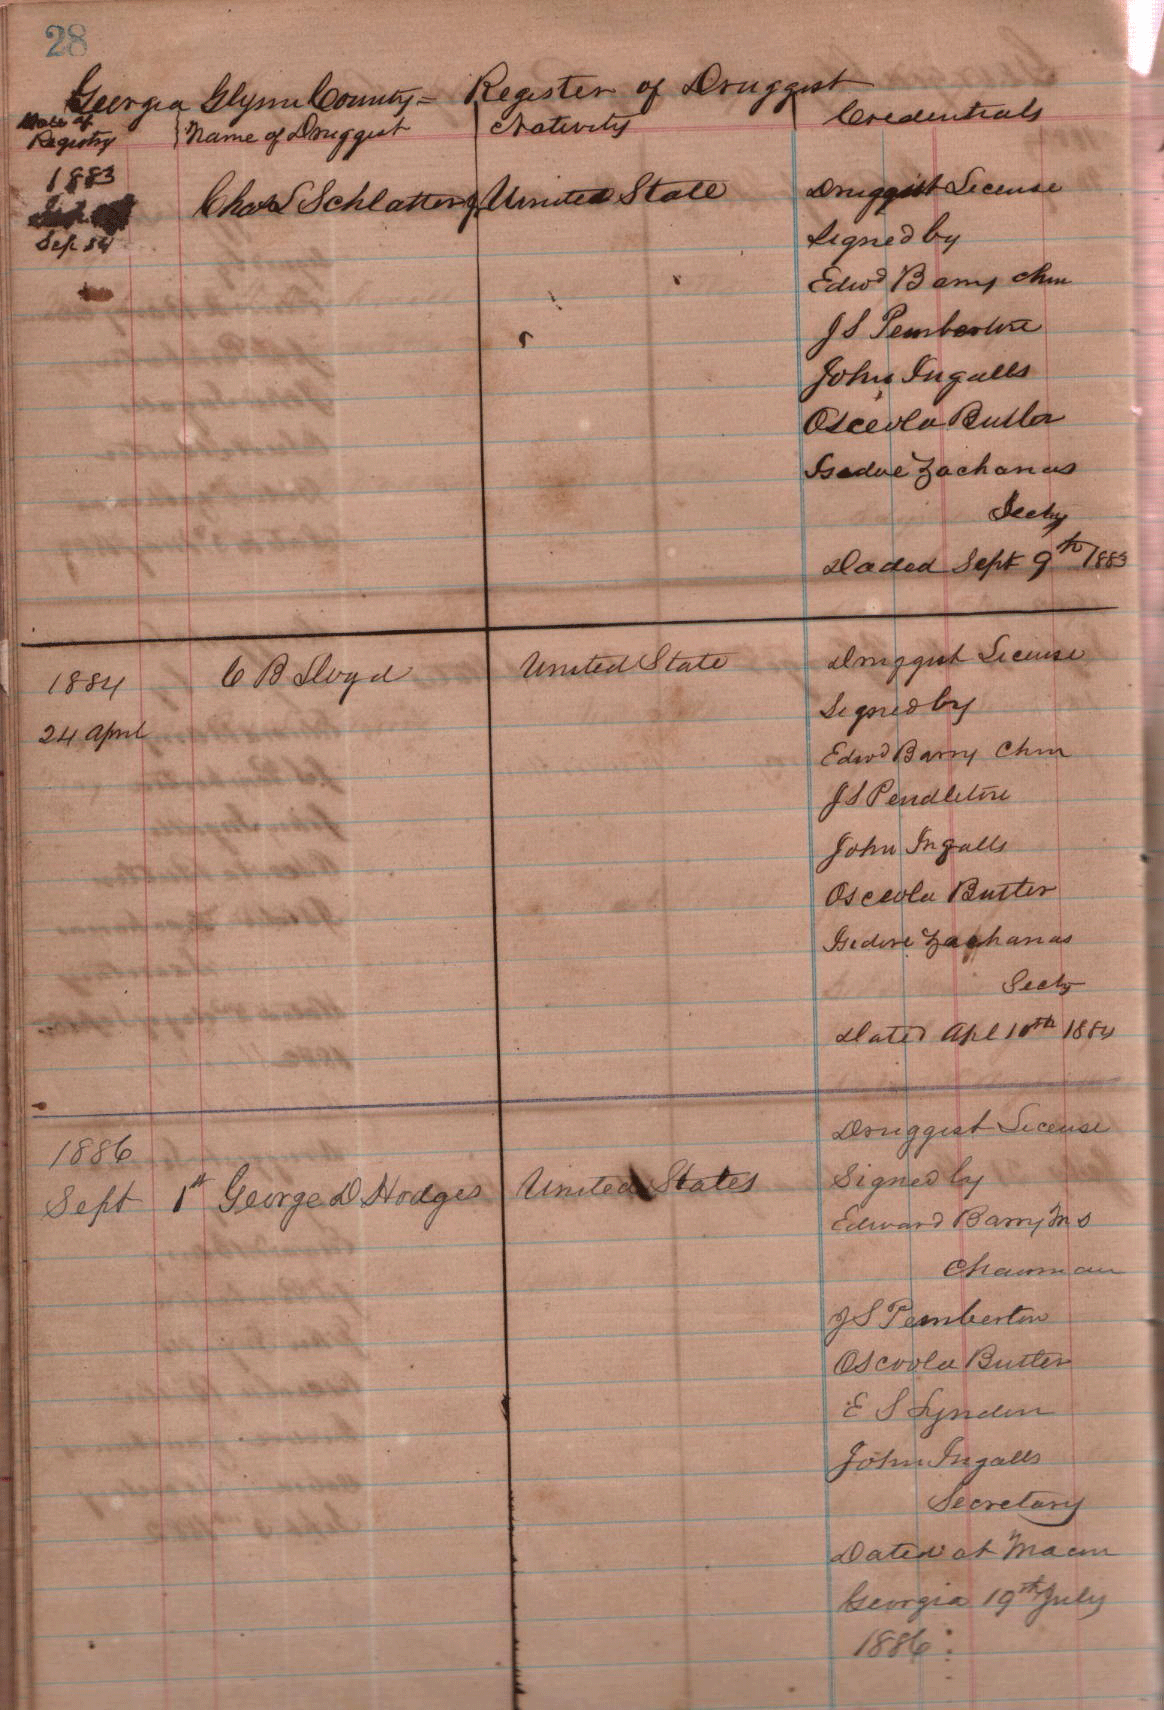 28
Georgia Glynn County = Register of Druggist
Date of Registry
Name of Druggist
Nativity
Credentials
1883
Sep 14
Chas L Schlatter Jr
United State
Druggist License
Signed by
Edwd Barry Chm
J S Pemberton
John Ingalls
Osceola Butler
Isedore Zacharias
Secty
Daded Sept 9th 1883
1884
24 April
C B Lloyd
United State
Druggist License
Signed by
Edwd Barry Chm
J S Pendleton
John Ingalls
Osceola Butler
Isedore Zacharias
Secty
Dated Apl 10th 1884
1886
Sept 1st
George D Hodges
United States
Druggist License
Signed by
Edward Barry
Chairman
J S Pemberton
Osceola Butler
E S Lyndon
John Ingalls
Secretary
Dated at Macon
Georgia 19th July
1886